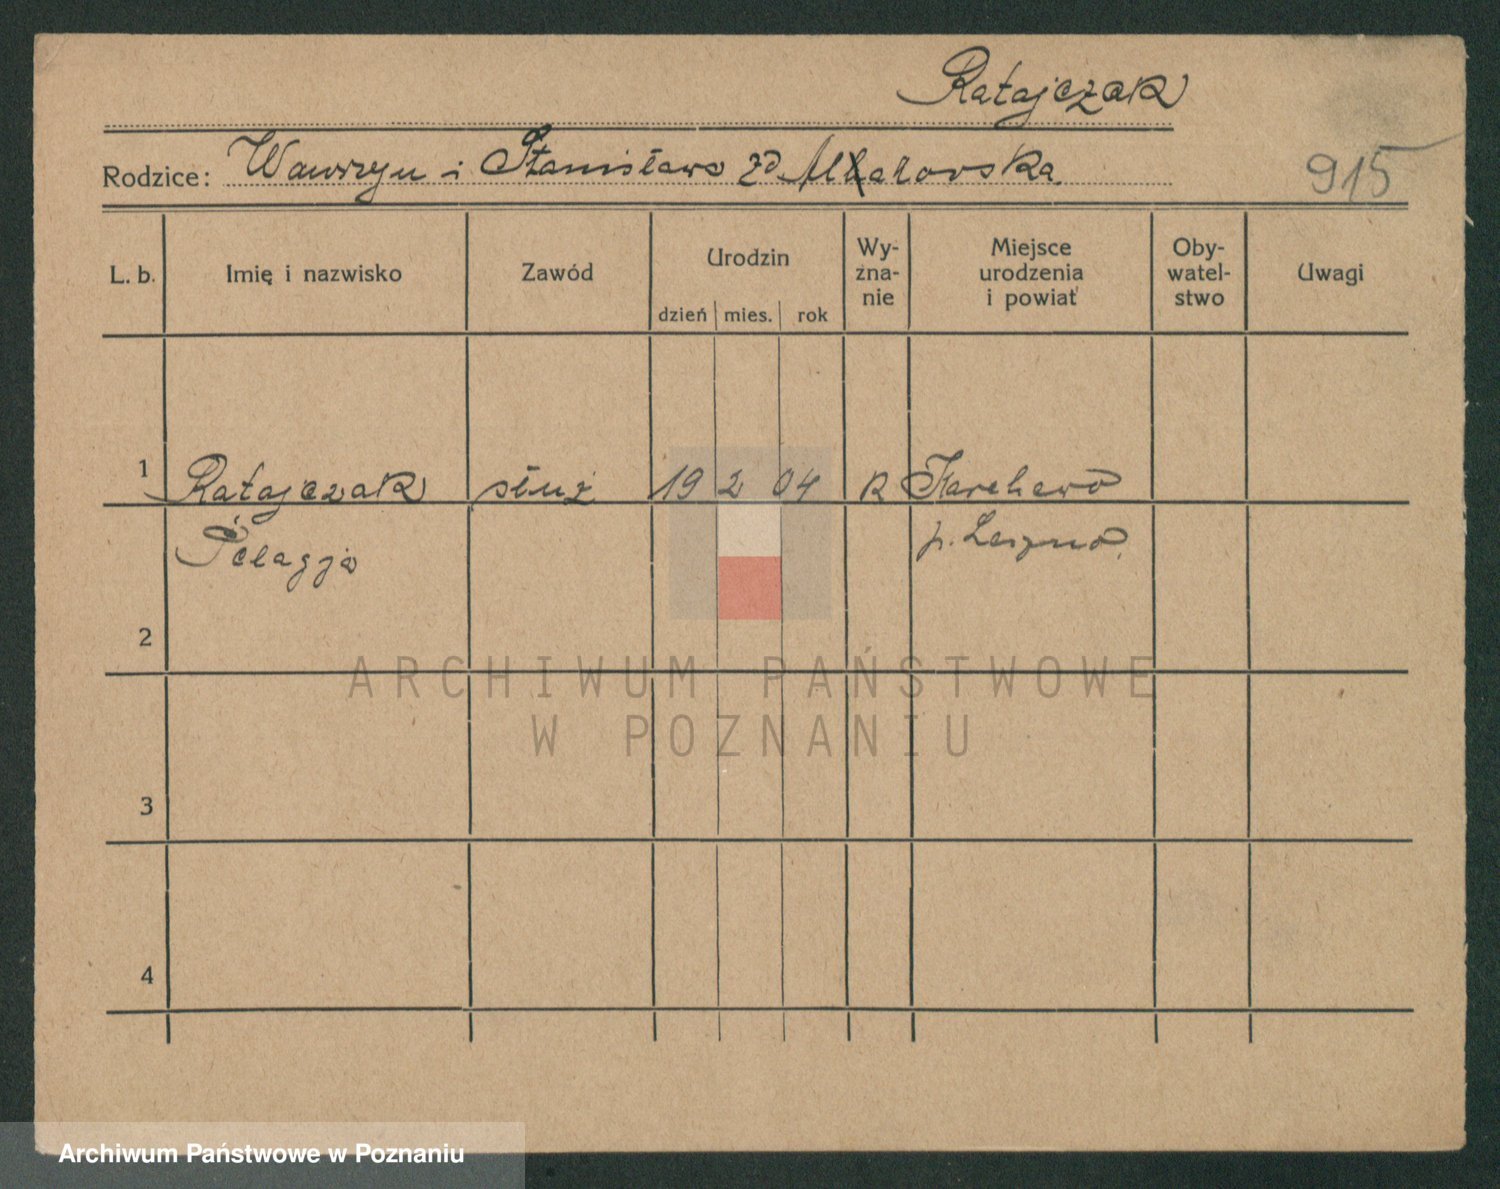 Ratajczak
Rodzice: Wawrzyn i Stanisława zd
915
L. b.
Imię i nazwisko
Zawód
Urodzin
dzień mies. rok
Wy-
zna-
nie
Miejsce
urodzenia
i powiat
Oby-
watel-
stwo
Uwagi
1 Ratajczak służ 19 2 04 R
Pelagja p. Leszno.
2
3
4
ARCHIWUM PAŃSTWOWE
W POZNANIU
Archiwum Państwowe w Poznaniu